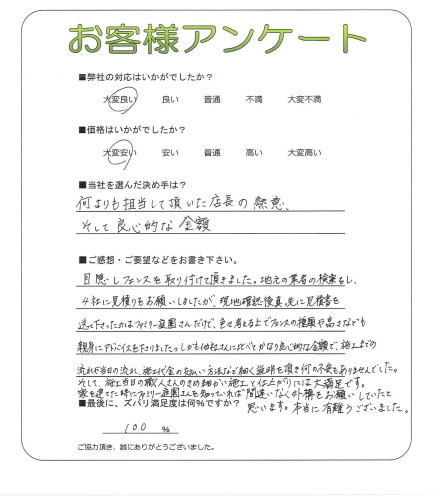 お客様アンケート
■弊社の対応はいかがでしたか？
大変良い 良い 普通 不満 大変不満
■価格はいかがでしたか？
大変安い 安い 普通 高い 大変高い
■当社を選んだ決め手は？
何よりも担当して頂いた店長の熱意、
そして良心的な金額
■ご感想・ご要望などをお書き下さい。
目隠しフェンスを取り付けて頂きました。地元の業者の検索をし、
4社に見積りをお願いしましたが、現地確認後真先に見積書を
送って下さったのはファミリー庭園さんだけで、色々考える上でフェンスの種類や高さなども
親身にアドバイスを下さりました。しかも他社さんに比べてかなり良心的な金額で、施工までの
流れや当日の流れ、施工代金の支払い方法など細く説明を頂き何の不安もありませんでした。
そして、施工当日の職人さんのきめ細かい施工と仕上がりには大満足です。
家を建てた時にファミリー庭園さんを知っていれば間違いなく外構をお願いしていたと
思います。本当に有難うございました。
■最後に、ズバリ満足度は何％ですか？
100 %
ご協力頂き、誠にありがとうございました。